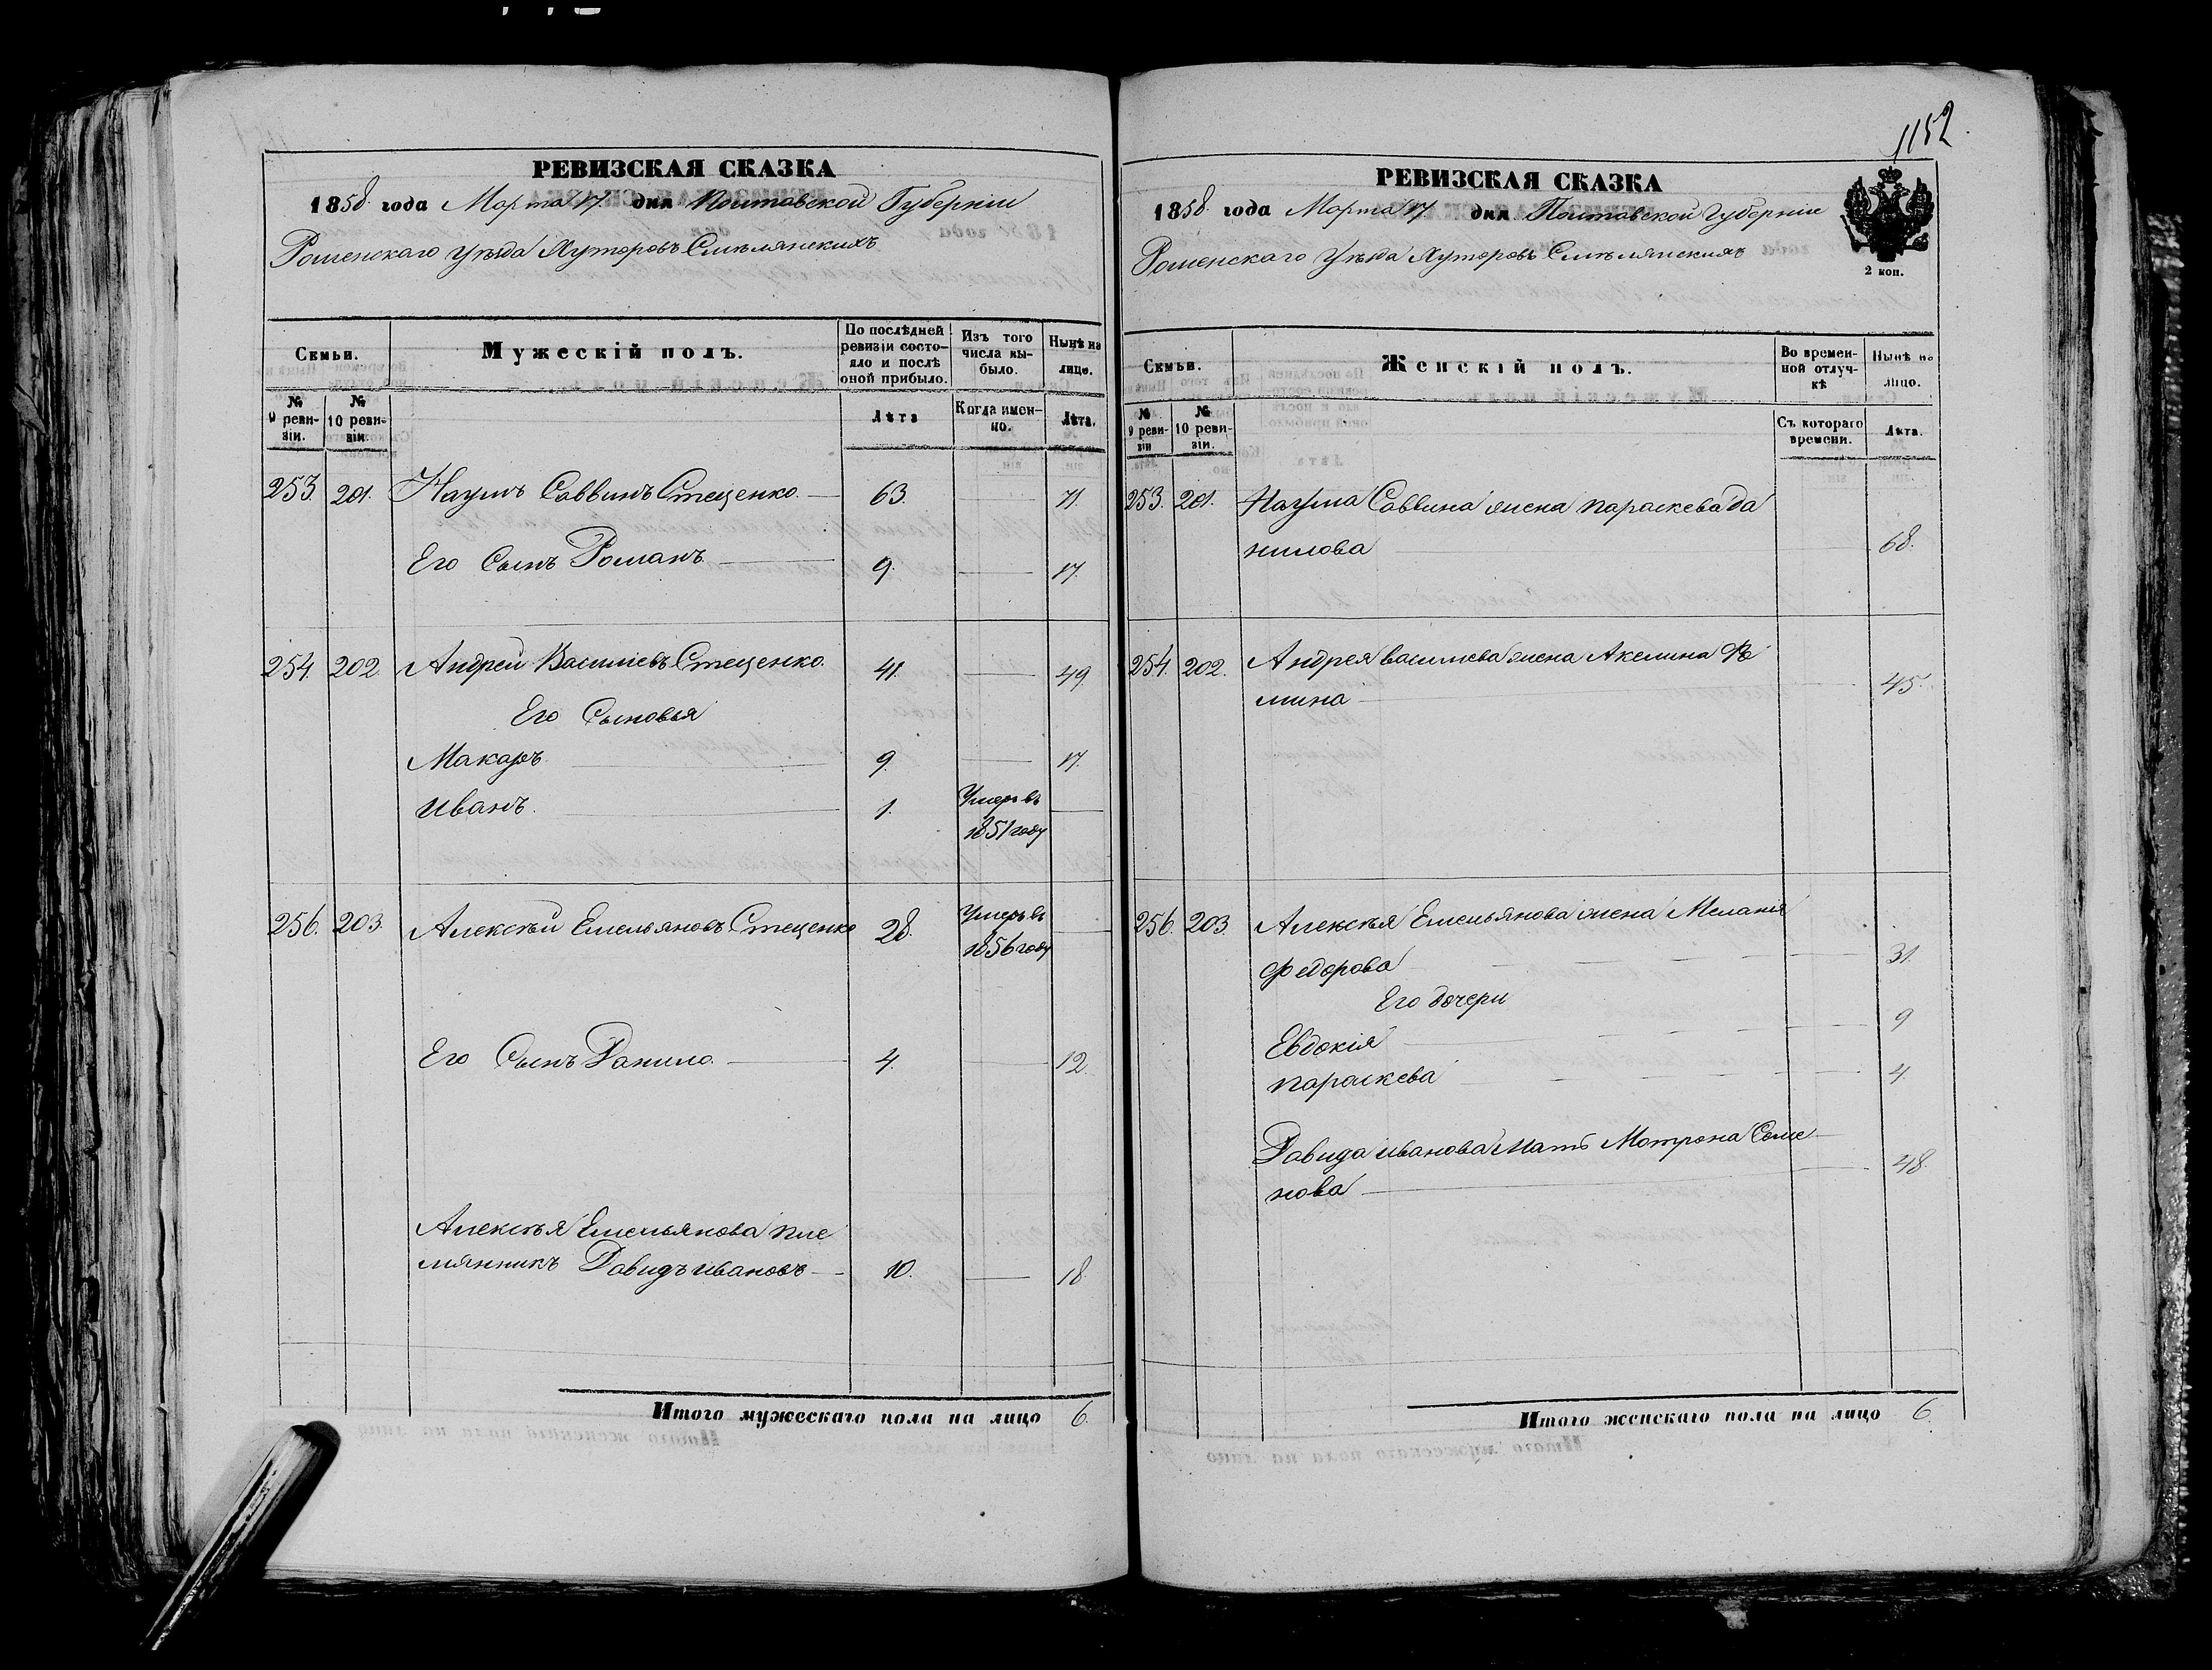 1152.
РЕВИЗСКАЯ СКАЗКА
1858. года Марта 17. дня Полтавской Губерніи
Роменскаго Уѣзда Хуторовъ Смѣлянскихъ
Семьи.
Мужескій полъ.
По послѣдней ревизіи состо-
яло и послѣ оной прибыло.
Изъ того числа вы-
было.
Нынѣ на лицо.
№ 9 реви-
зіи.
№ 10 реви-
зіи.
Лѣта
Когда имен-
но.
Лѣта.
253. 201. Наумъ Саввинъ Стеценко. 63. 71.
Его Сынъ Романъ 9. 17.
254. 202. Андрей Василіевъ Стеценко. 41. 49.
Его Сыновья
Макаръ. 9. 17.
Иванъ. 1. Умеръ въ
1851 году
256. 203. Алексѣй Емельяновъ Стеценко 28. Умеръ въ
1856 году
Его Сынъ Данило. 4. 12.
Алексѣя Емельянова пле
мянникъ Давидъ Ивановъ 10. 18
Итого мужескаго пола на лицо 6.
РЕВИЗСКАЯ СКАЗКА
1858. года Марта 17. дня Полтавской Губерніи
Роменскаго Уѣзда Хуторовъ Смѣлянскихъ
2 коп.
Семьи.
Женскій полъ.
Во времен-
ной отлуч-
кѣ
Нынѣ на
лицо.
№
9 реви-
зіи
№
10 реви-
зіи.
Съ котораго
времени.
Лѣта.
253. 201. Наума Саввина жена Параскева Да
нилова 68.
254. 202. Андрея Василіева жена Акелина Фо
мина 45.
256. 203. Алексѣя Емельянова жена Меланія
Федорова 31.
Его дочери
Евдокія 9
Параскева 4.
Давида Иванова Мать Мотрона Семе
нова 48.
Итого женскаго пола на лицо 6.